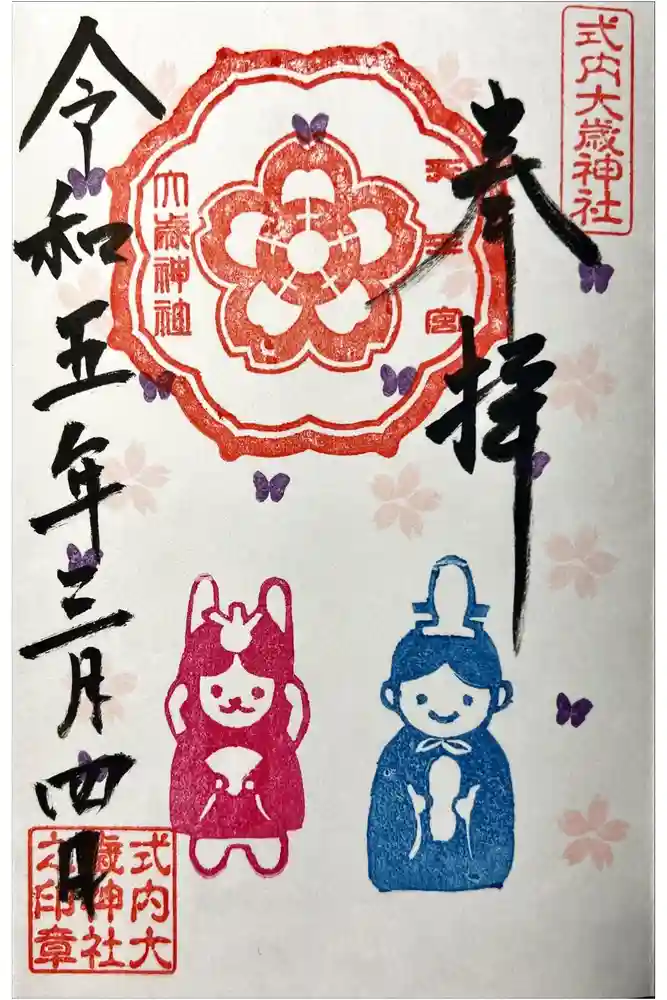 式内大歳神社
奉拝
天王宮
大歳神社
令和五年三月四日
式内大
歳神社
之印章